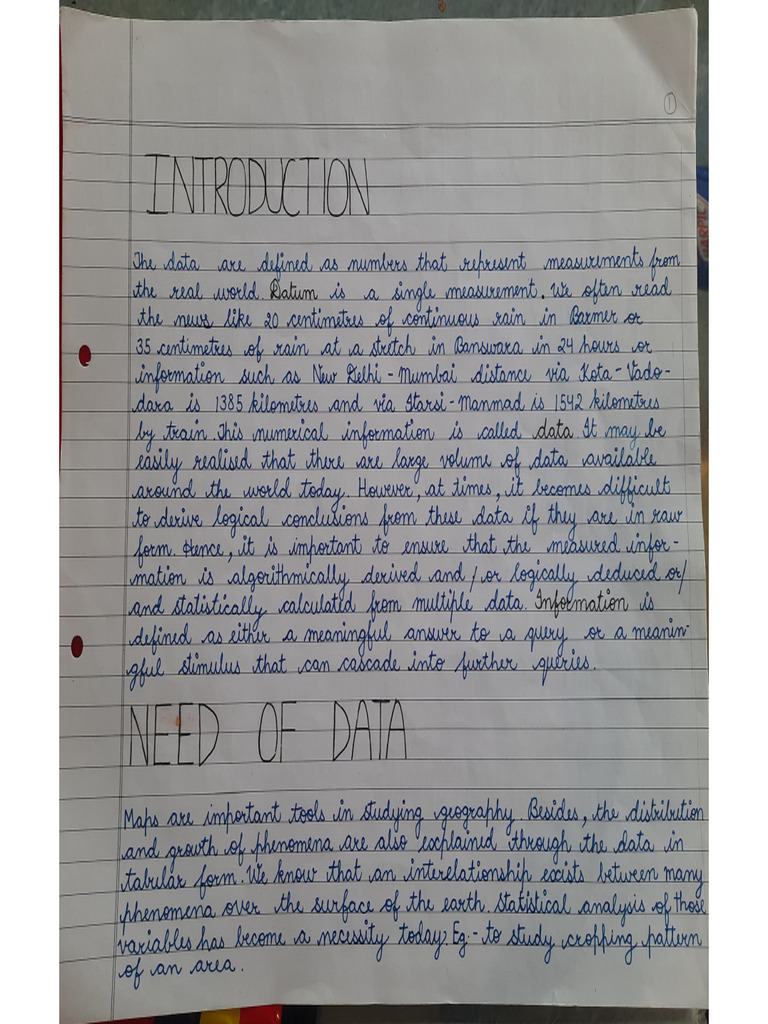 1
INTRODUCTION
The data are defined as numbers that represent measurements from
the real world. Datum is a single measurement. We often read
the news like 20 centimetres of continuous rain in Barmer or
35 centimetres of rain at a stretch in Banswara in 24 hours or
information such as New Delhi - Mumbai distance via Kota - Vado-
dara is 1385 kilometres and via Itarsi - Manmad is 1542 kilometres
by train. This numerical information is called data It may be
easily realised that there are large volume of data available
around the world today. However, at times, it becomes difficult
to derive logical conclusions from these data if they are in raw
form. Hence, it is important to ensure that the measured infor-
mation is algorithmically derived and / or logically deduced or/
and statistically calculated from multiple data. Information is
defined as either a meaningful answer to a query or a meanin-
gful stimulus that can cascade into further queries.
NEED OF DATA
Maps are important tools in studying geography. Besides, the distribution
and growth of phenomena are also explained through the data in
tabular form. We know that an interelationship exists between many
phenomena over the surface of the earth. Statistical analysis of those
variables has become a necessity today. Eg:- to study cropping pattern
of an area.